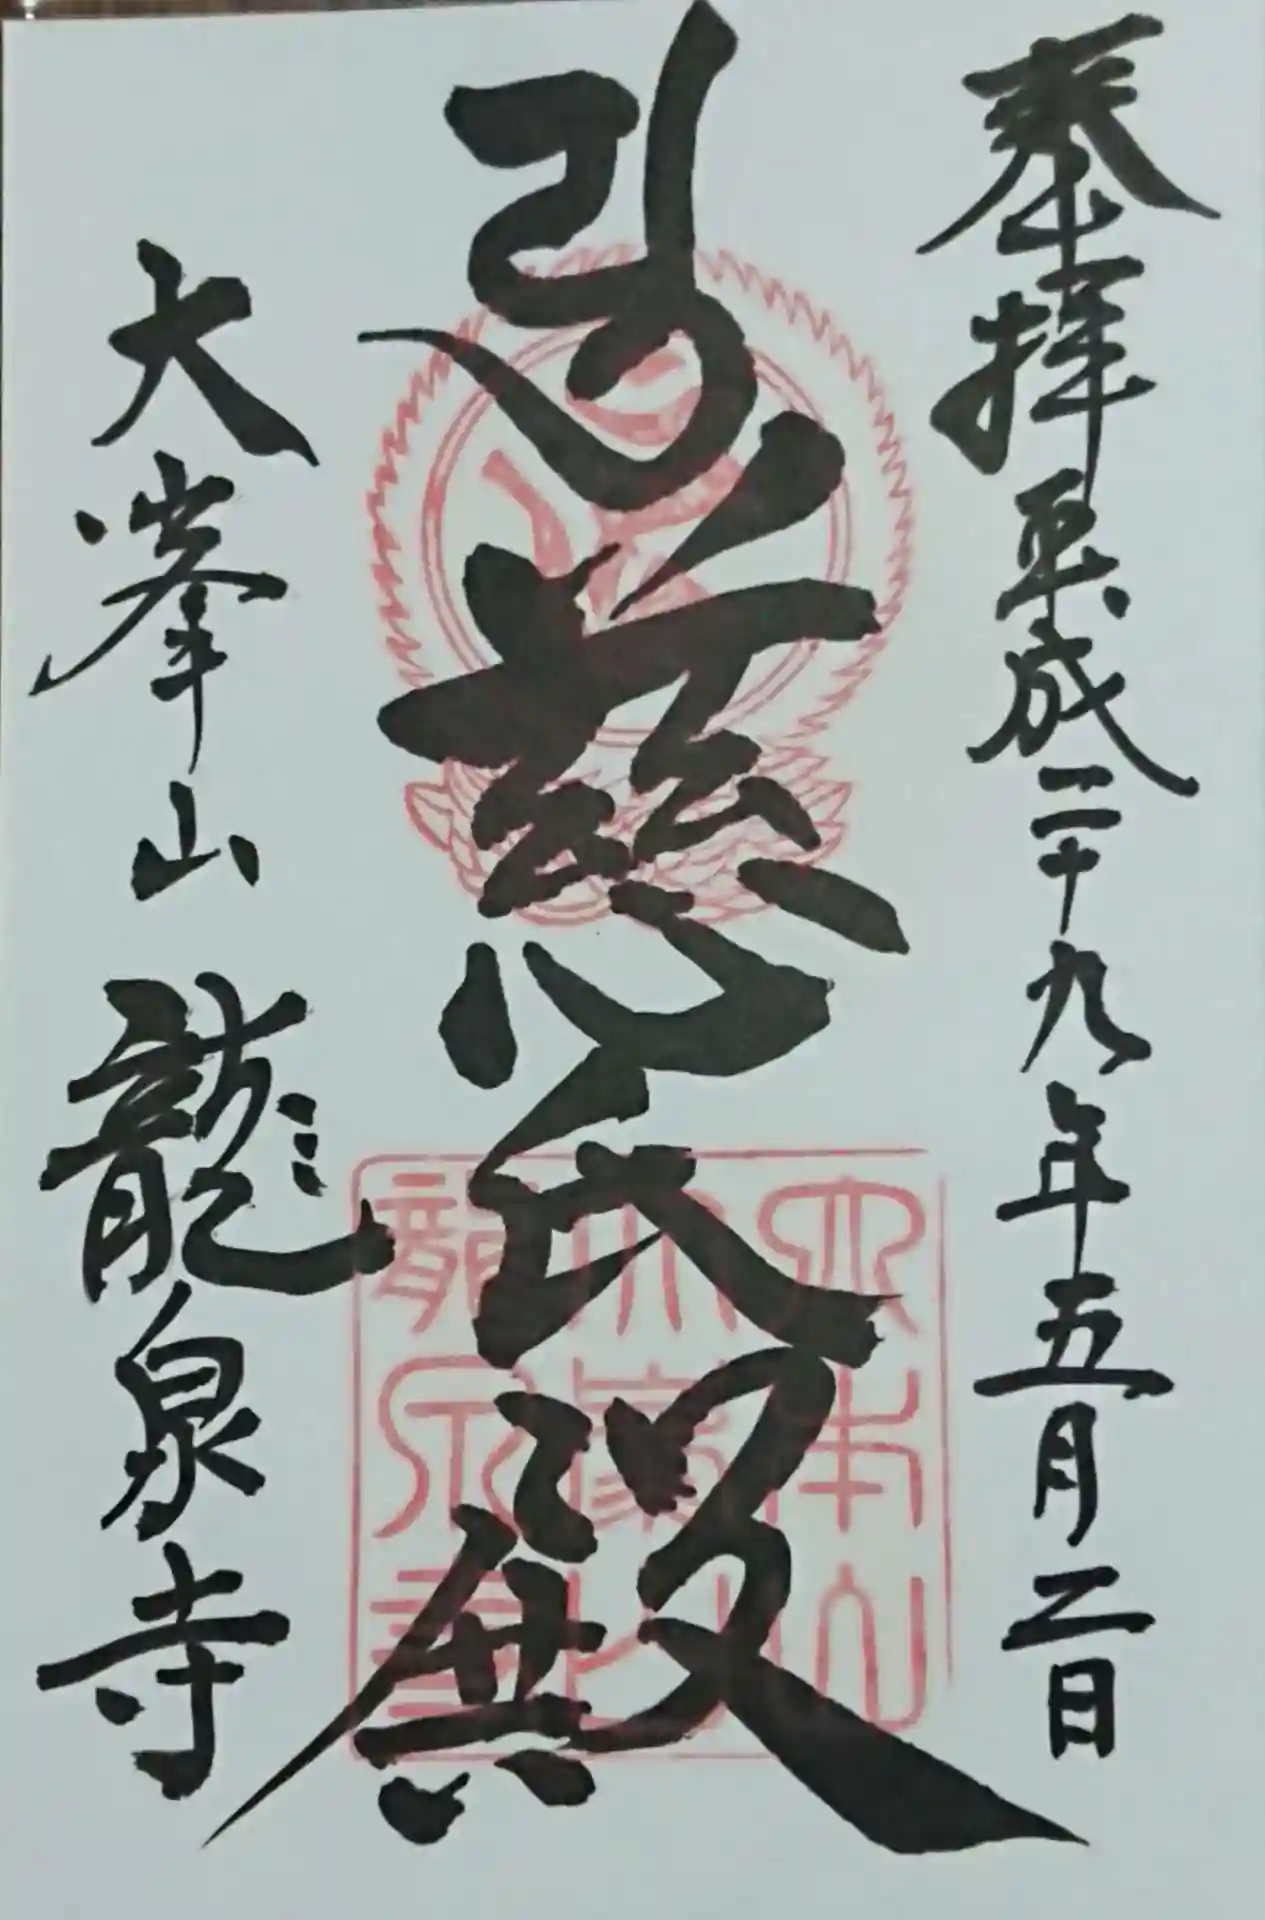 奉拝 平成二十九年五月二日
慈氏殿
大峯山 龍泉寺
大本山
大峯山
龍泉寺